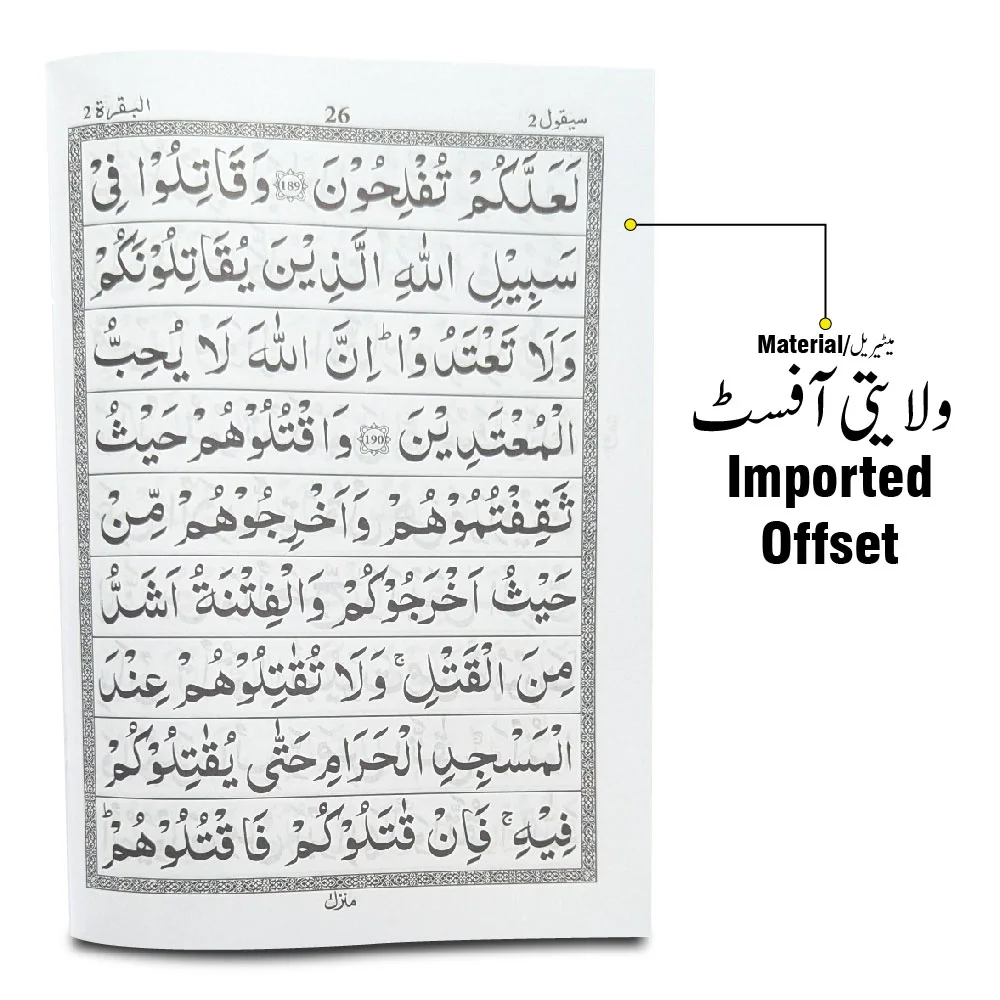 سيقول 2
26
البقرة 2
لَعَلَّكُمْ تُفْلِحُوْنَ 189 وَقَاتِلُوْا فِىْ
سَبِيْلِ اللّٰهِ الَّذِيْنَ يُقَاتِلُوْنَكُمْ
وَلَا تَعْتَدُوْا ؕ اِنَّ اللّٰهَ لَا يُحِبُّ
الْمُعْتَدِيْنَ 190 وَاقْتُلُوْهُمْ حَيْثُ
ثَقِفْتُمُوْهُمْ وَاَخْرِجُوْهُمْ مِّنْ
حَيْثُ اَخْرَجُوْكُمْ وَالْفِتْنَةُ اَشَدُّ
مِنَ الْقَتْلِ ۚ وَلَا تُقٰتِلُوْهُمْ عِنْدَ
الْمَسْجِدِ الْحَرَامِ حَتّٰى يُقٰتِلُوْكُمْ
فِيْهِ ۚ فَاِنْ قٰتَلُوْكُمْ فَاقْتُلُوْهُمْ ؕ
منزل
Material/میٹیریل
ولایتی آفسٹ
Imported
Offset